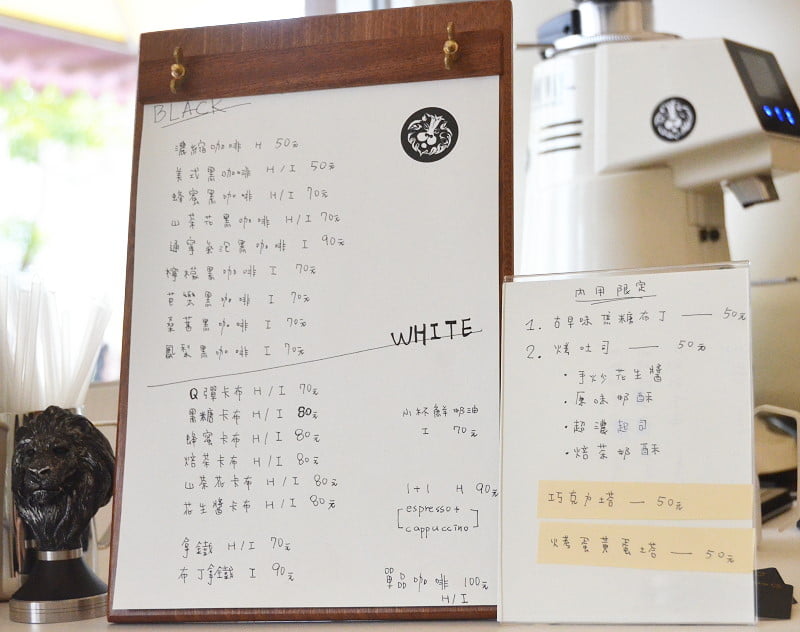 BLACK
濃縮咖啡 H 50元
美式黑咖啡 H/I 50元
蜂蜜黑咖啡 H/I 70元
山茶花黑咖啡 H/I 70元
通寧氣泡黑咖啡 I 90元
檸檬黑咖啡 I 70元
芭樂黑咖啡 I 70元
桑葚黑咖啡 I 70元
鳳梨黑咖啡 I 70元
WHITE
Q彈卡布 H/I 70元
黑糖卡布 H/I 80元
蜂蜜卡布 H/I 80元
焙茶卡布 H/I 80元
山茶花卡布 H/I 80元
花生醬卡布 H/I 80元
拿鐵 H/I 70元
布丁拿鐵 I 90元
小杯鮮奶油
I 70元
1+1 H 90元
[espresso+
cappuccino]
單品咖啡 100元
H/I
內用限定
1. 古早味焦糖布丁 — 50元
2. 烤吐司 — 50元
・手炒花生醬
・原味奶酥
・超濃起司
・焙茶奶酥
巧克力塔 — 50元
烤蛋黃蛋塔 — 50元